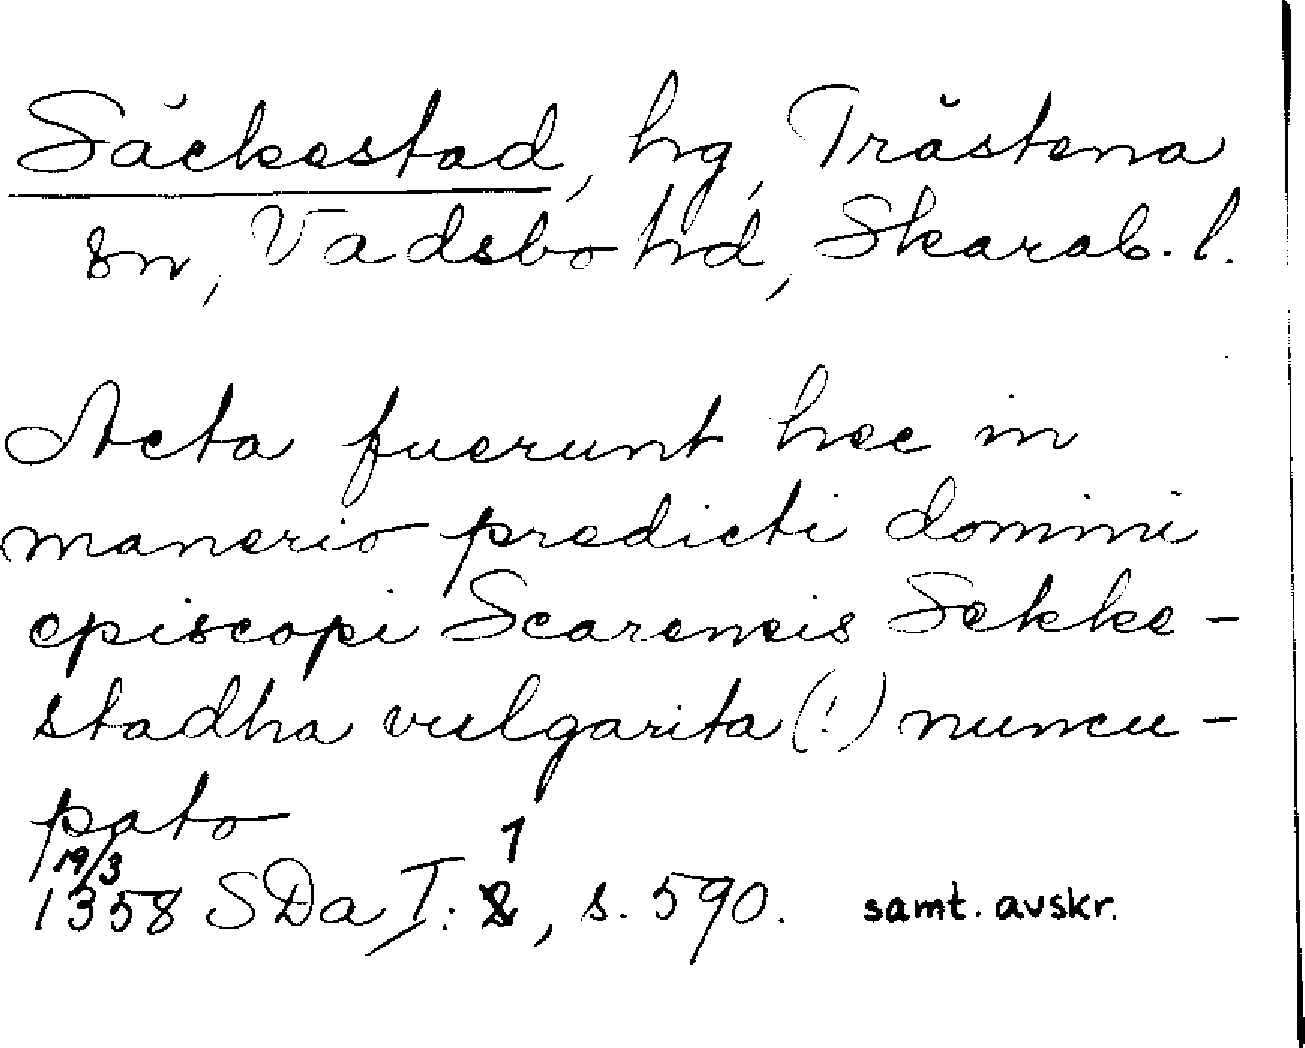 Säckestad, hg, Trästena
sn, Vadsbo hd, Skarab. l.
Acta fuerunt hec in
manerio predicti domini
episcopi Scarensis Sekke-
stadha vulgarita (!) nuncu-
pato
19/3 1
1358 SDa I: 2, s. 590. samt. avskr.